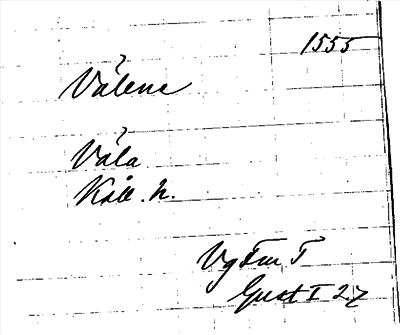 1555
Välene
Väla
Käk. h.
Vg Fm T
Gust I 27